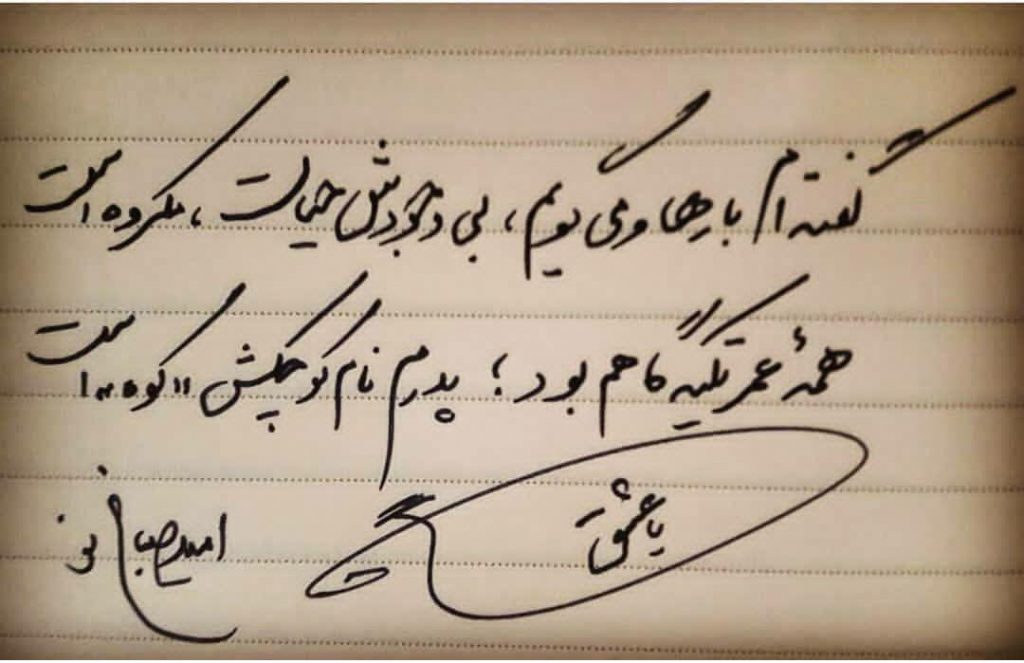 گفته ام بارها و می گویم، بی وجودش حیات، مکروه است
همهٔ عمر تکیه گاهم بود؛ پدرم نام کوچکش "کوه" است
با عشق
امید صباغ نو